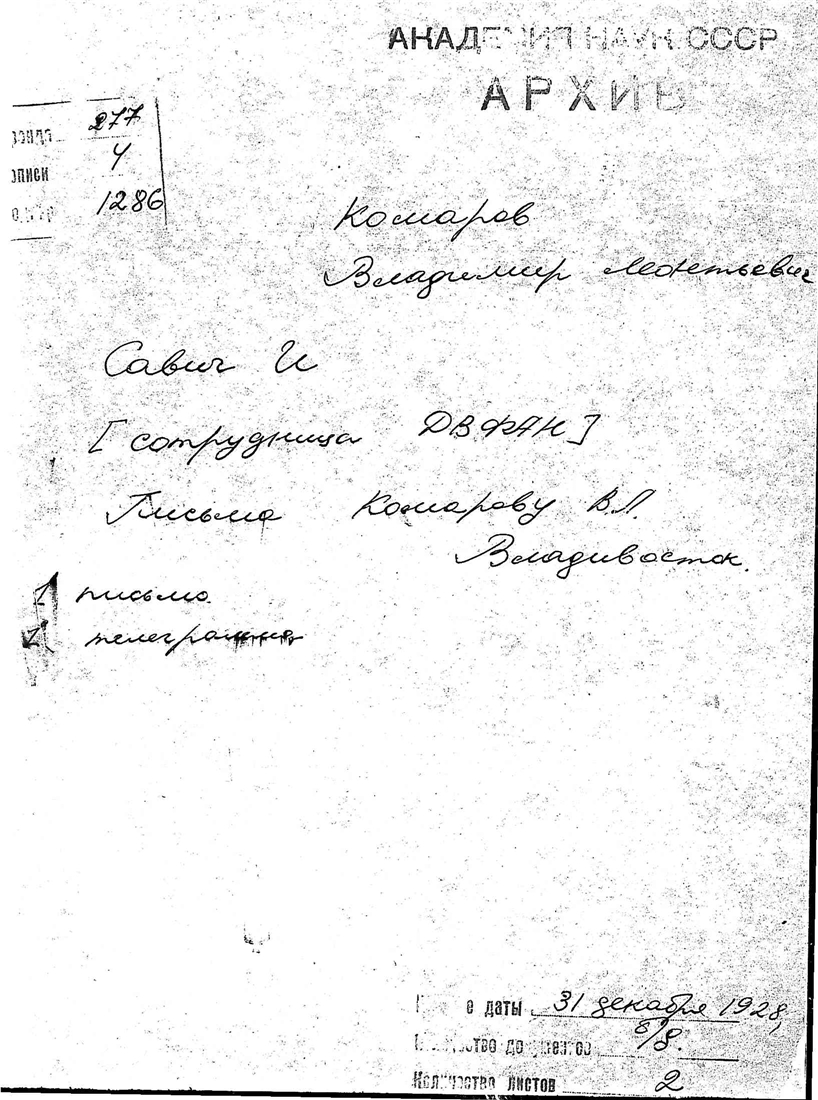 АКАДЕМИЯ НАУК СССР
АРХИВ
фонда 277
описи 4
1286
Комаров
Владимир Леонтьевич
Савич И
[сотрудница ДВФАН]
Письма Комарову В.Л.
Владивосток.
1 письмо.
1 телеграмма
е даты 31 декабря 1928,
Количество документов
Количество листов 2